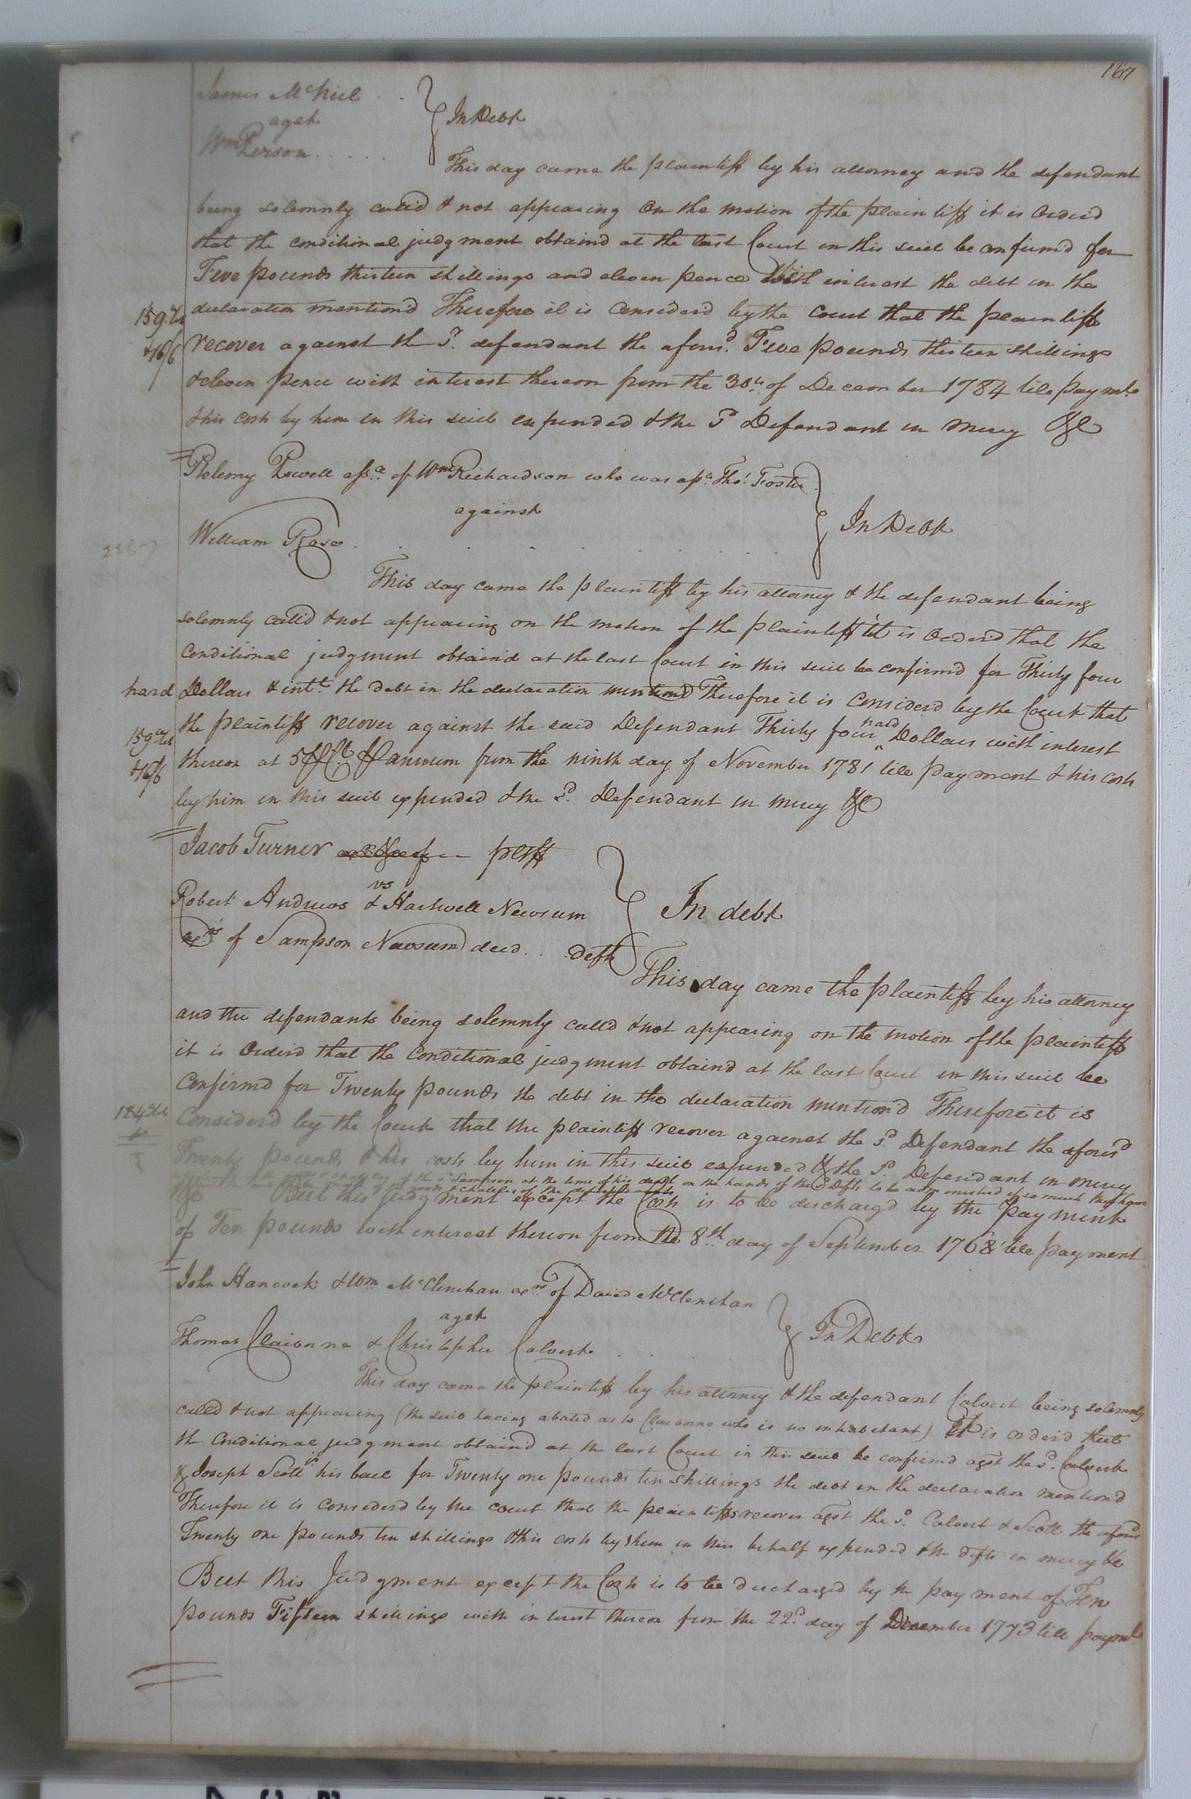 167
James McNeil
agst
Wm Person
In Debt
This day came the plaintiff by his attorney and the defendant
being solemnly called & not appearing on the motion of the plaintiff it is Orderd
that the conditional judgment obtaind at the last Court in this suit be confirmd for
Five pounds thirteen shillings and eleven pence With interest the debt in the
declaration mentiond Therefore it is considerd by the Court that the plaintiff
recover against the sd. defendant the aforsd. Five pounds thirteen shillings
& eleven pence with interest thereon from the 30th of December 1784 till paymt.
& his costs by him in this suit expended & the sd Defendant in mercy &c
Ptolemy Powell assee. of Wm Richardson who was assee. Thos. Foster
against
William Rose
In Debt
This day came the plaintiff by his attorney & the defendant being
solemnly calld & not appearing on the motion of the plaintiff it is Orderd that the
Conditional judgment obtaind at the last Court in this suit be confirmd for Thirty four
hard Dollars & intt. the debt in the declaration mentiond Therefore it is considerd by the Court that
the plaintiff recover against the said Defendant Thirty four hard Dollars with interest
thereon at 5 annum from the ninth day of November 1781 till payment & his costs
by him in this suit expended & the sd. Defendant in mercy &c
Jacob Turner pltff
vs
Robert Andrews & Hartwell Newsum
of Sampson Newsum decd. Defts
In debt
This day came the plaintiff by his attorney
and the defendants being solemnly calld & not appearing on the motion of the plaintiff
it is Orderd that the Conditional judgment obtaind at the last Court in this suit be
Confirmd for Twenty pounds the debt in the declaration mentiond Therefore it is
Considerd by the Court that the plaintiff recover against the sd Defendant the aforsd
Twenty pounds & his costs by him in this suit expended & the sd Defendant in mercy
&c But this judgment except the Costs is to be dischargd by the payment
of Ten pounds with interest thereon from the 8th day of September 1768 till payment
John Hancock & Wm McClenchan exrs of David McClenchan
agst
Thomas Claiborne & Christopher Calvert
In Debt
This day came the plaintiffs by his attorney & the defendant Calvert being solemnly
called & not appearing (the suit having abated as to Claiborne who is no inhabitant) It is orderd that
the Conditional judgment obtaind at the last Court in this suit be confirmd agst the sd. Calvert
& Joseph Scott his bail for Twenty one pounds ten shillings the debt in the declaration mentiond
Therefore it is considerd by the court that the plaintiffs recover agst the sd. Calvert & Scott the aforsd
Twenty one pounds ten shillings & his costs by them in this behalf expended & the defts in mercy &c
But this Judgment except the Costs is to be discharged by the payment of Ten
pounds Fifteen shillings with interest thereon from the 22d. day of December 1773 till paymt.